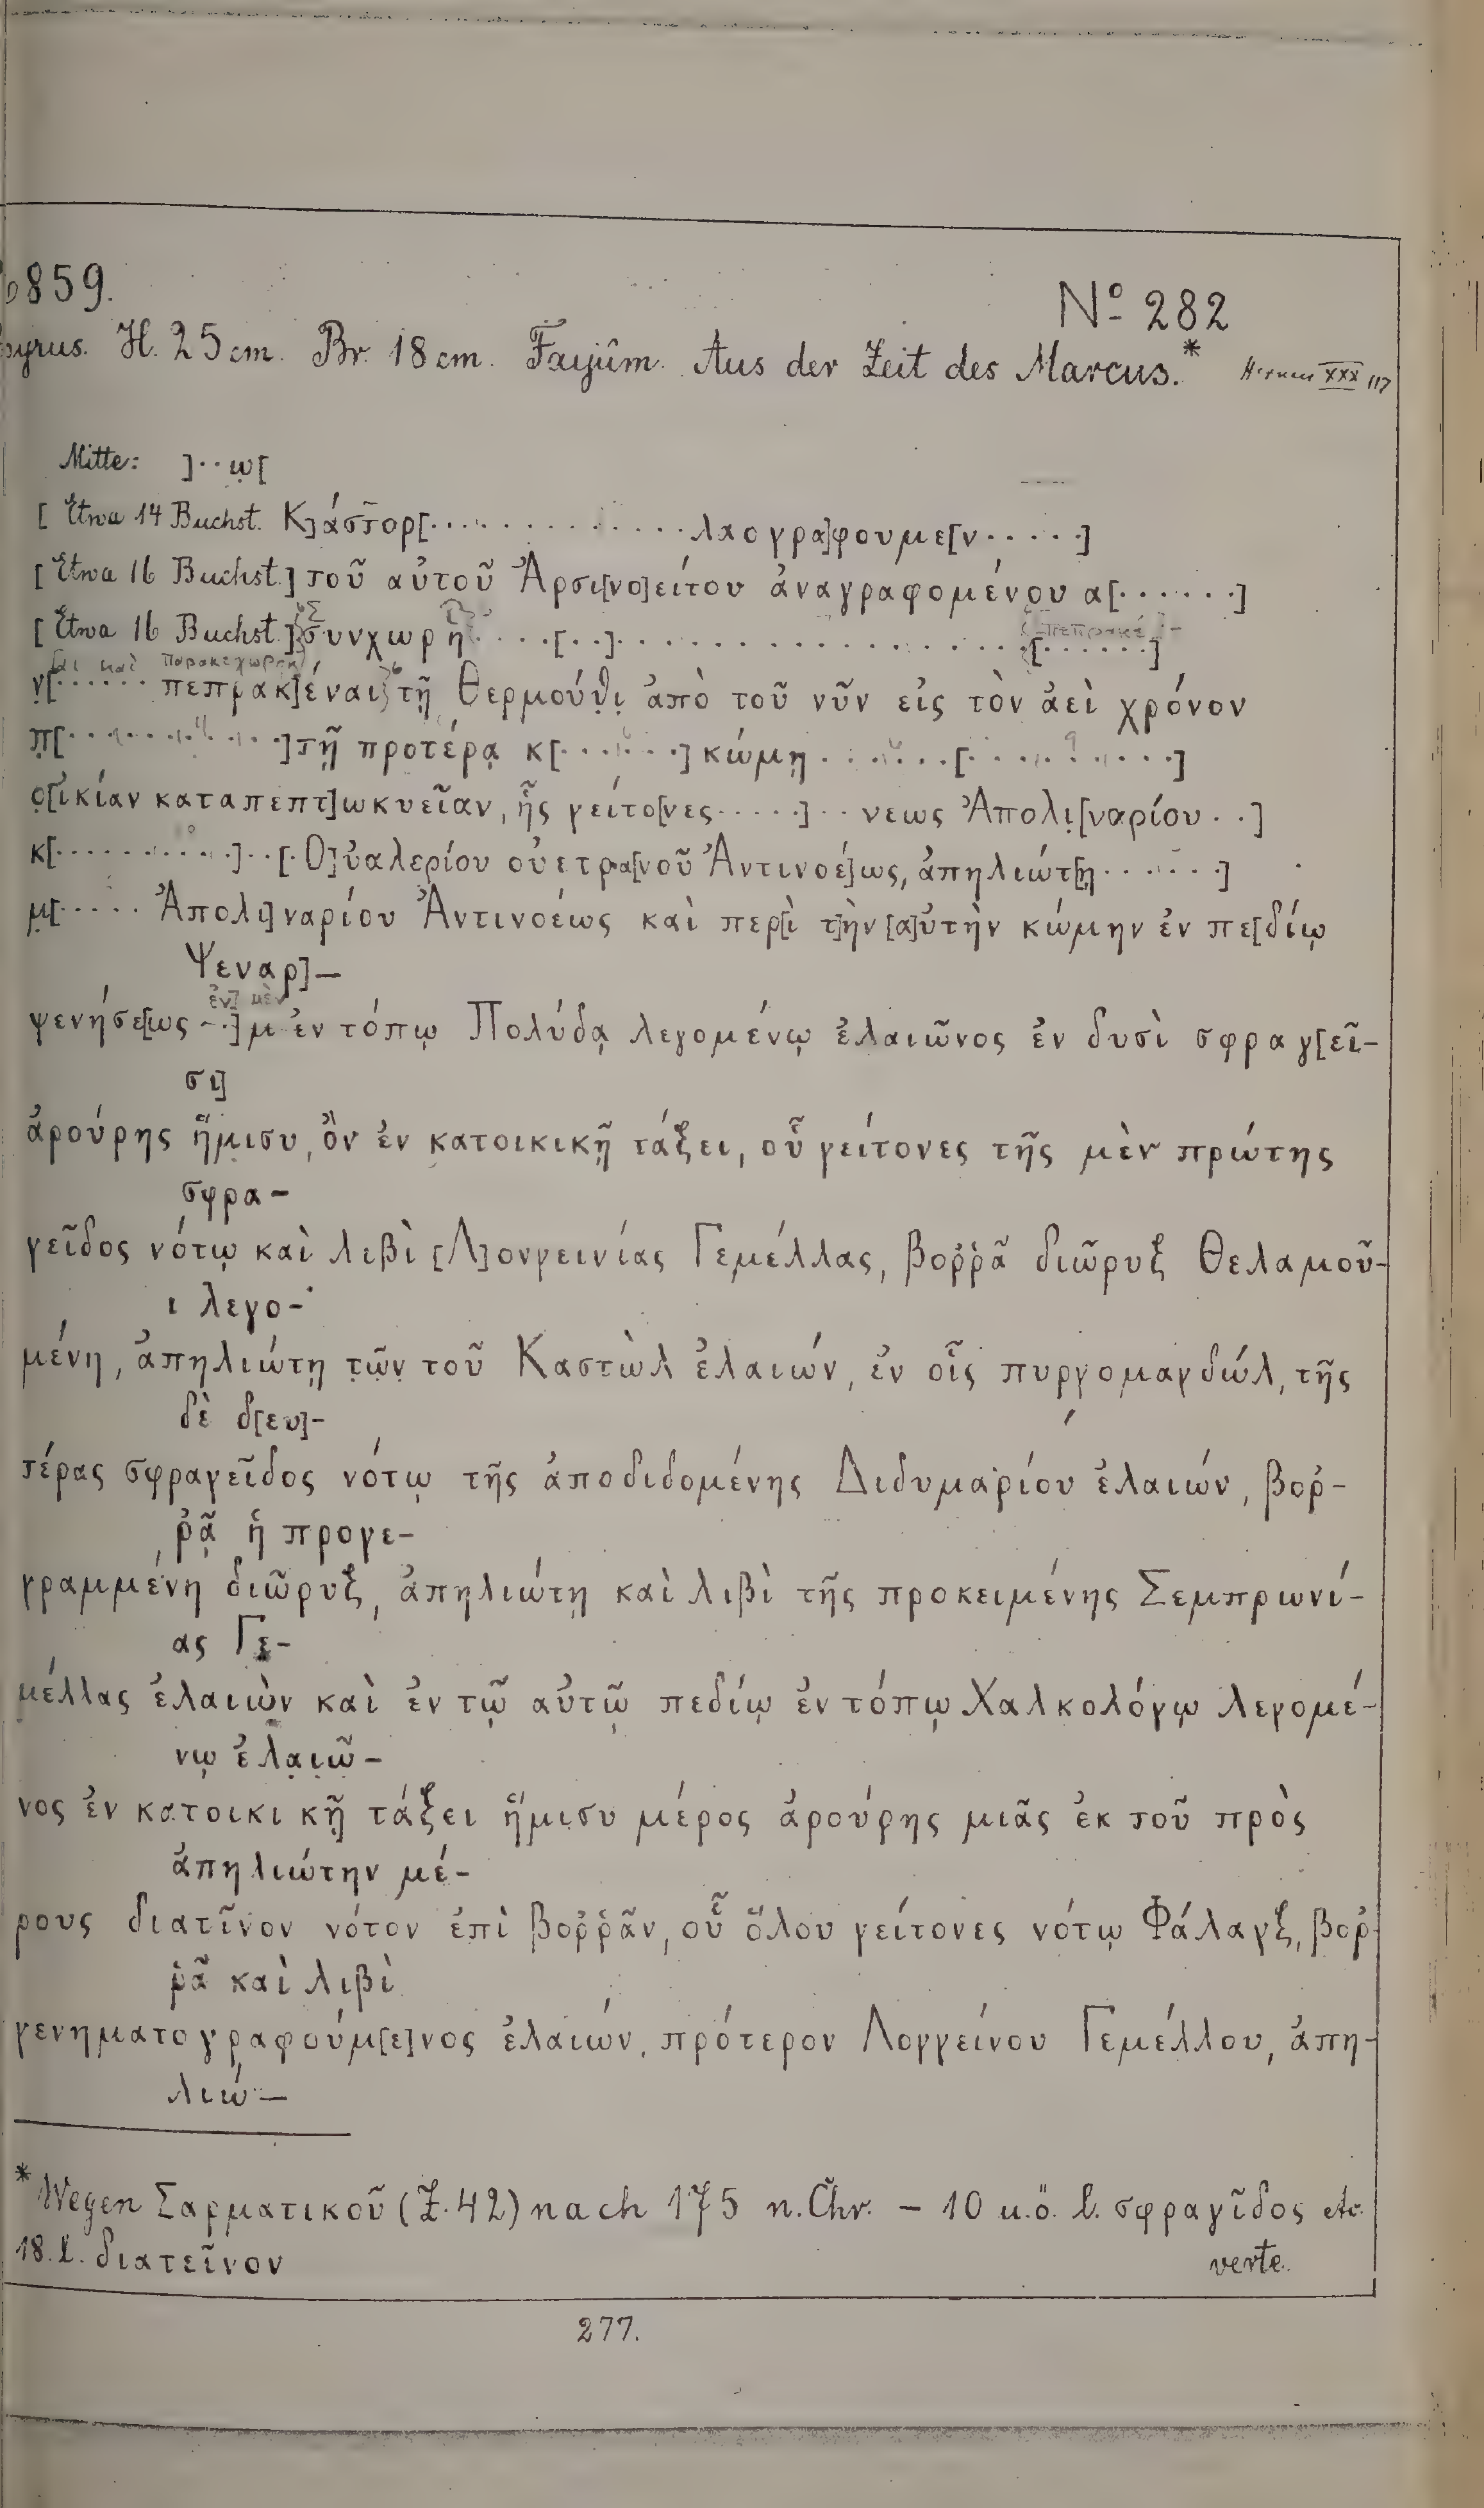 6859.
No 282
pyrus. H. 25 cm. Br. 18 cm. Faijûm. Aus der Zeit des Marcus.* Hermes XXX 117
Mitte: ]··ω̣[
[Etwa 14 Buchst. Κ]άστορ[·············λαογρα]φουμε[ν·····]
[Etwa 16 Buchst.] τοῦ αὐτοῦ Ἀρσι[νο]είτου ἀναγραφομένου α[······]
[Etwa 16 Buchst.] συνχωρη·····[··]·················[······]
πεπρακέ-
αι καὶ παρακεχωρηκ
ν̣[······ πεπρακ]έναι τῇ Θερμούθ̣ι̣ ἀπὸ τοῦ νῦν εἰς τὸν ἀεὶ χρόνον
π̣[···········]τῇ προτέρᾳ κ[······] κώμῃ ·······[··········]
ο̣[ἰκίαν καταπεπτ]ωκυεῖαν, ἧς γείτο[νες·····]··νεως Ἀπολι̣[ναρίου··]
κ[··········]··[·Ο]ὐαλερίου οὐετρα[νοῦ Ἀντινοέ]ως, ἀπηλιώτ[ῃ······]
μ̣[····· Ἀπολι]ναρίου Ἀντινοέως καὶ περ[ὶ τ]ὴν [α]ὐτὴν κώμην ἐν πε[δίῳ
Ψεναρ]–
ἐν] μὲν
ψενήσε[ως –·]μ ἐν τόπῳ Πολύδᾳ λεγομένῳ ἐλαιῶνος ἐν δυσὶ σφραγ[εῖ–
σι]
ἀρούρης ἥμ̣ισυ, ὃν ἐν κατοικικῇ τάξει, οὗ γείτονες τῆς μὲν πρώτης
σφρα–
γεῖδος νότῳ καὶ λιβὶ [Λ]ονγεινίας Γεμέλλας, βοῤῥᾶ διῶρυξ Θελαμοῦ–
ι λεγο–
μένη, ἀπηλιώτῃ τ̣ῶν̣ τοῦ Καστὼλ ἐλαιών, ἐν οἷς πυργομαγδώλ, τῆς
δὲ δ[ευ]–
τέρας σφραγεῖδος νότῳ τῆς ἀποδιδομένης Διδυμαρίου ἐλαιών, βοῤ–
ῥᾶ̣ ἡ προγε–
γραμμένη διῶρυξ, ἀπηλιώτῃ καὶ λιβὶ τῆς προκειμένης Σεμπρωνί–
ας Γε–
μέλλας ἐλαιὼν καὶ ἐν τῷ αὐτῷ πεδίῳ ἐν τόπῳ Χαλκολόγῳ λεγομέ–
νῳ ἐλ̣α̣ι̣ῶ̣–
νος ἐν κατοικικῇ τάξει ἥμισυ μέρος ἀρούρης μιᾶς ἐκ τοῦ πρὸς
ἀπηλιώτην μέ–
ρους διατῖνον νότον ἐπὶ βοῤῥᾶν, οὗ ὅλου γείτονες νότῳ Φάλαγξ, βοῤ–
ῥᾶ καὶ λιβὶ
γενηματογραφούμ[ε]νος ἐλαιών, πρότερον Λογγείνου Γεμέλλου, ἀπη–
λιώ–
* Wegen Σαρματικοῦ (Z. 42) nach 175 n. Chr. – 10 u. ö. l. σφραγῖδος etc.
18. l. διατεῖνον
verte.
277.